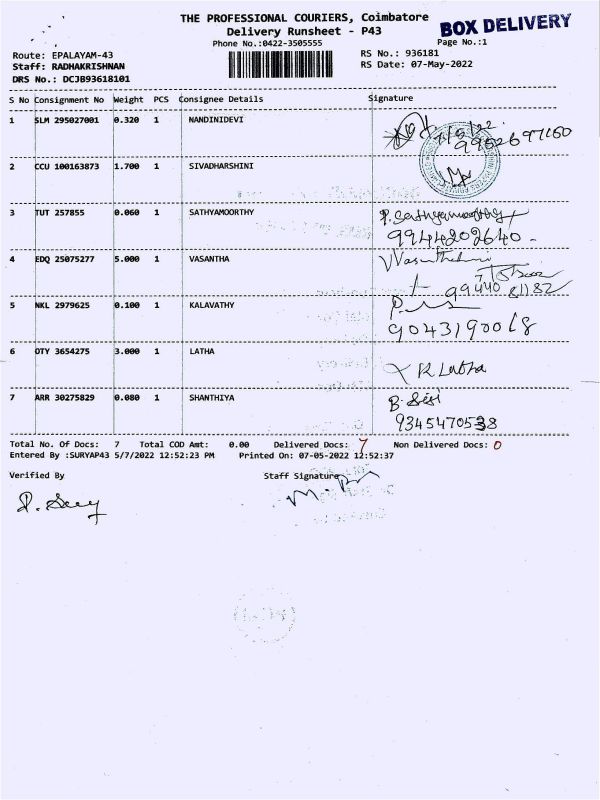 THE PROFESSIONAL COURIERS, Coimbatore
BOX DELIVERY
Delivery Runsheet - P43
Phone No.:0422-3505555
Page No.:1
Route: EPALAYAM-43
RS No.: 936181
Staff: RADHAKRISHNAN
RS Date: 07-May-2022
DRS No.: DCJB93618101
S No Consignment No Weight PCS Consignee Details Signature
1 SLM 295027001 0.320 1 NANDINIDEVI
2 CCU 100163873 1.700 1 SIVADHARSHINI
3 TUT 257855 0.060 1 SATHYAMOORTHY P. Sathyamoorthy
9944202640
4 EDQ 25075277 5.000 1 VASANTHA
99440 81182
5 NKL 2979625 0.100 1 KALAVATHY
9043190068
6 OTY 3654275 3.000 1 LATHA R Latha
7 ARR 30275829 0.080 1 SHANTHIYA
9345470538
Total No. Of Docs: 7 Total COD Amt: 0.00 Delivered Docs: 7 Non Delivered Docs: 0
Entered By :SURYAP43 5/7/2022 12:52:23 PM Printed On: 07-05-2022 12:52:37
Verified By Staff Signature